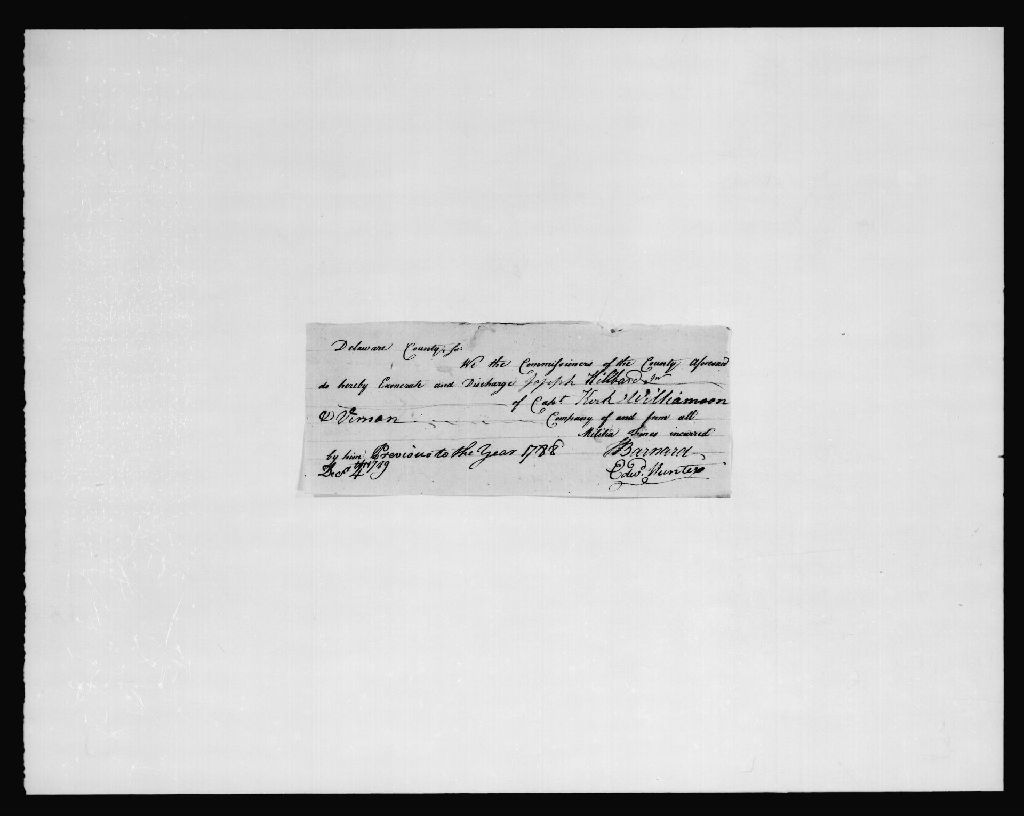 Delaware County, ss.
We the Commissioners of the County Aforesaid
do hereby Exonerate and Discharge Joseph Hibbard Jnr
of Capt Kerk & Williamson
& Vernon Company of and from all
Militia Fines incurred
by him Previous to the Year 1788
Decr 4th 1789
Barnard
Edwd Hunter